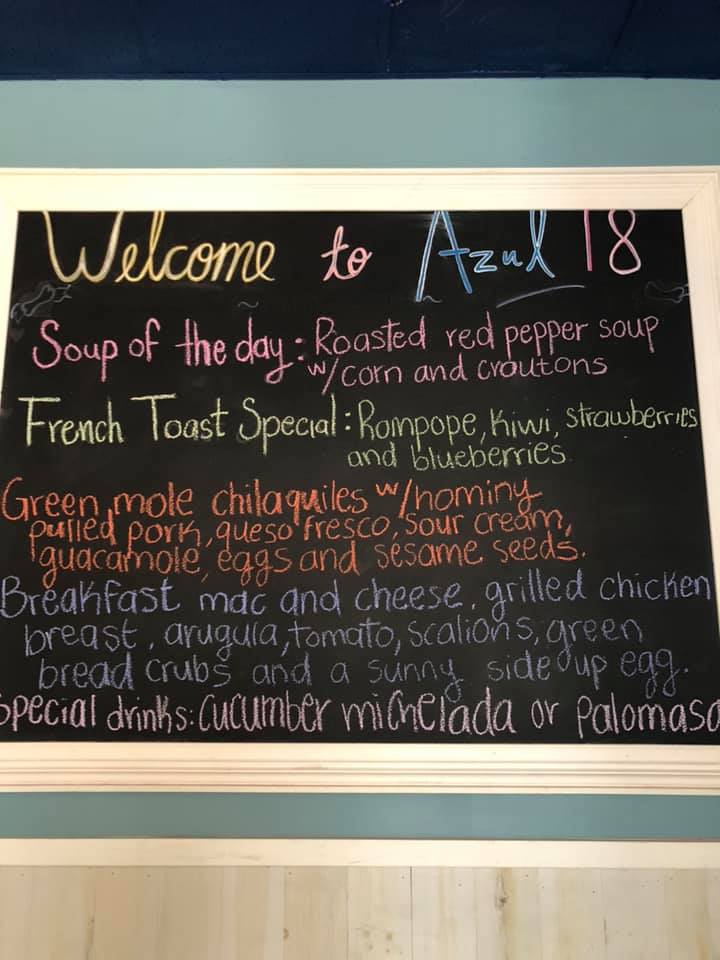 Welcome to Azul 18
Soup of the day: Roasted red pepper soup
w/corn and croutons
French Toast Special: Rompope, Kiwi, strawberries
and blueberries
Green mole chilaquiles w/hominy
pulled pork, queso fresco, sour cream,
guacamole, eggs and sesame seeds.
Breakfast mac and cheese, grilled chicken
breast, arugula, tomato, scalions, green
bread crubs and a sunny side up egg.
Special drinks: cucumber michelada or palomasa